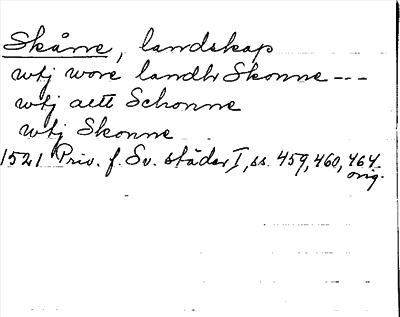 Skåne, landskap
wtj wore landh Skonne ---
wtj aett Schonne
wtj Skonne
1521 Priv. f. Sv. städer I, ss. 459, 460, 464.
orig.